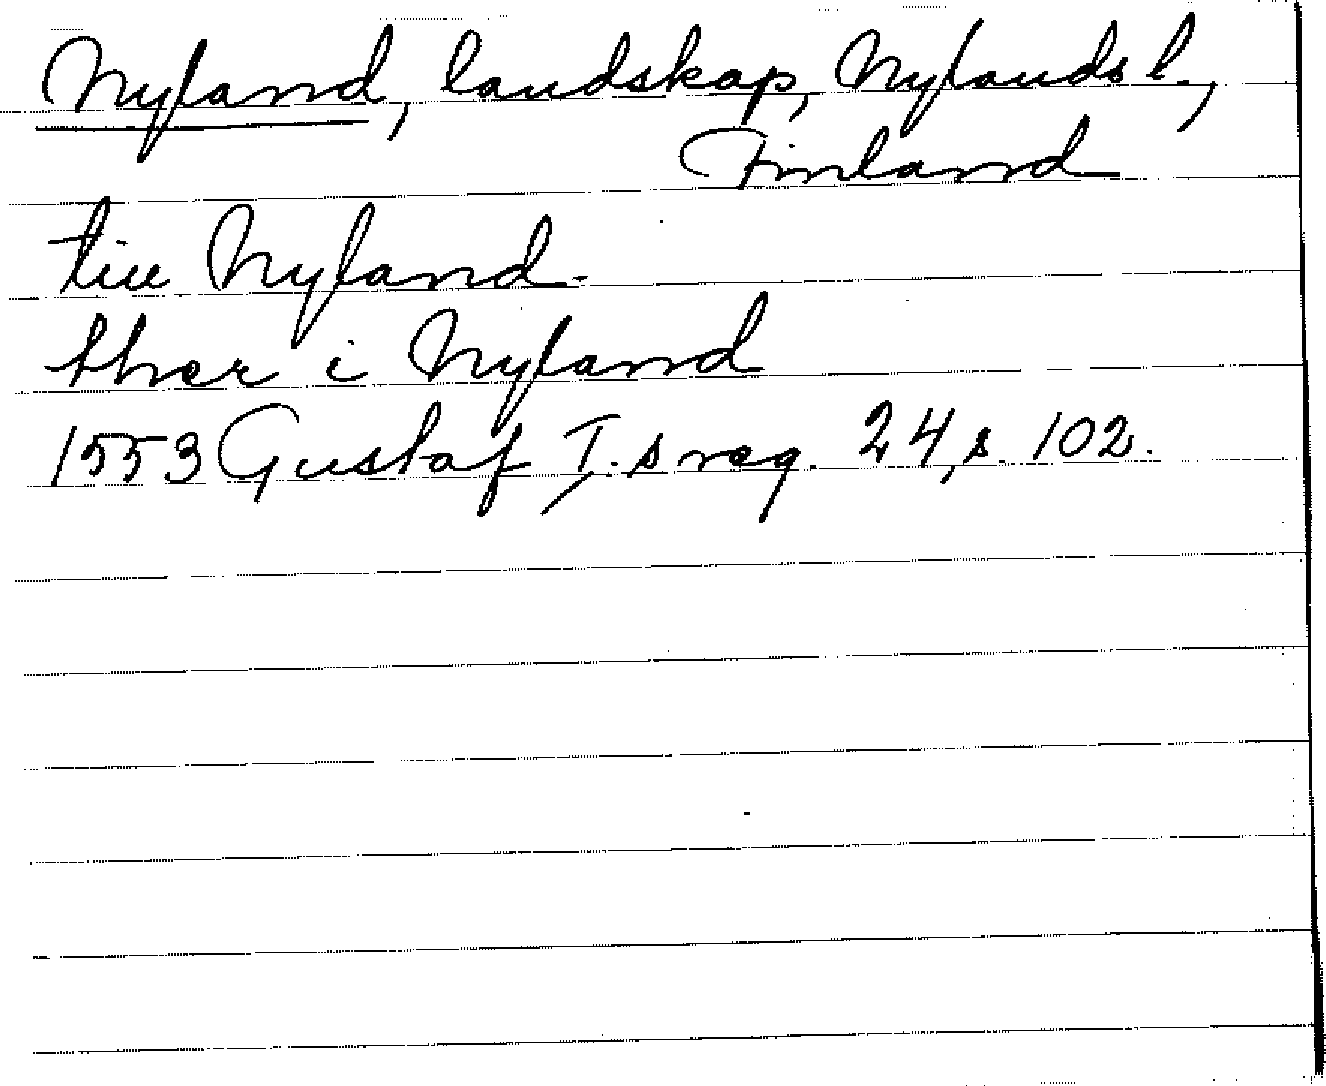 Nyland, landskap, Nylands l.,
Finland
tiu Nyland.
ther i Nyland
1553 Gustaf I.s reg. 24, s. 102.